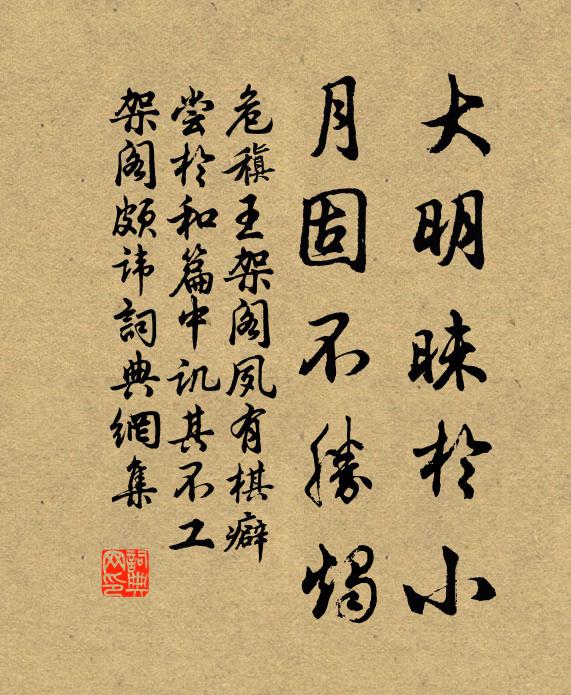 大明昧於小
月固不勝燭
危稹王架閣夙有棋癖
尝於和篇中讥其不工
架阁頗讳詞典網集
詞典网印